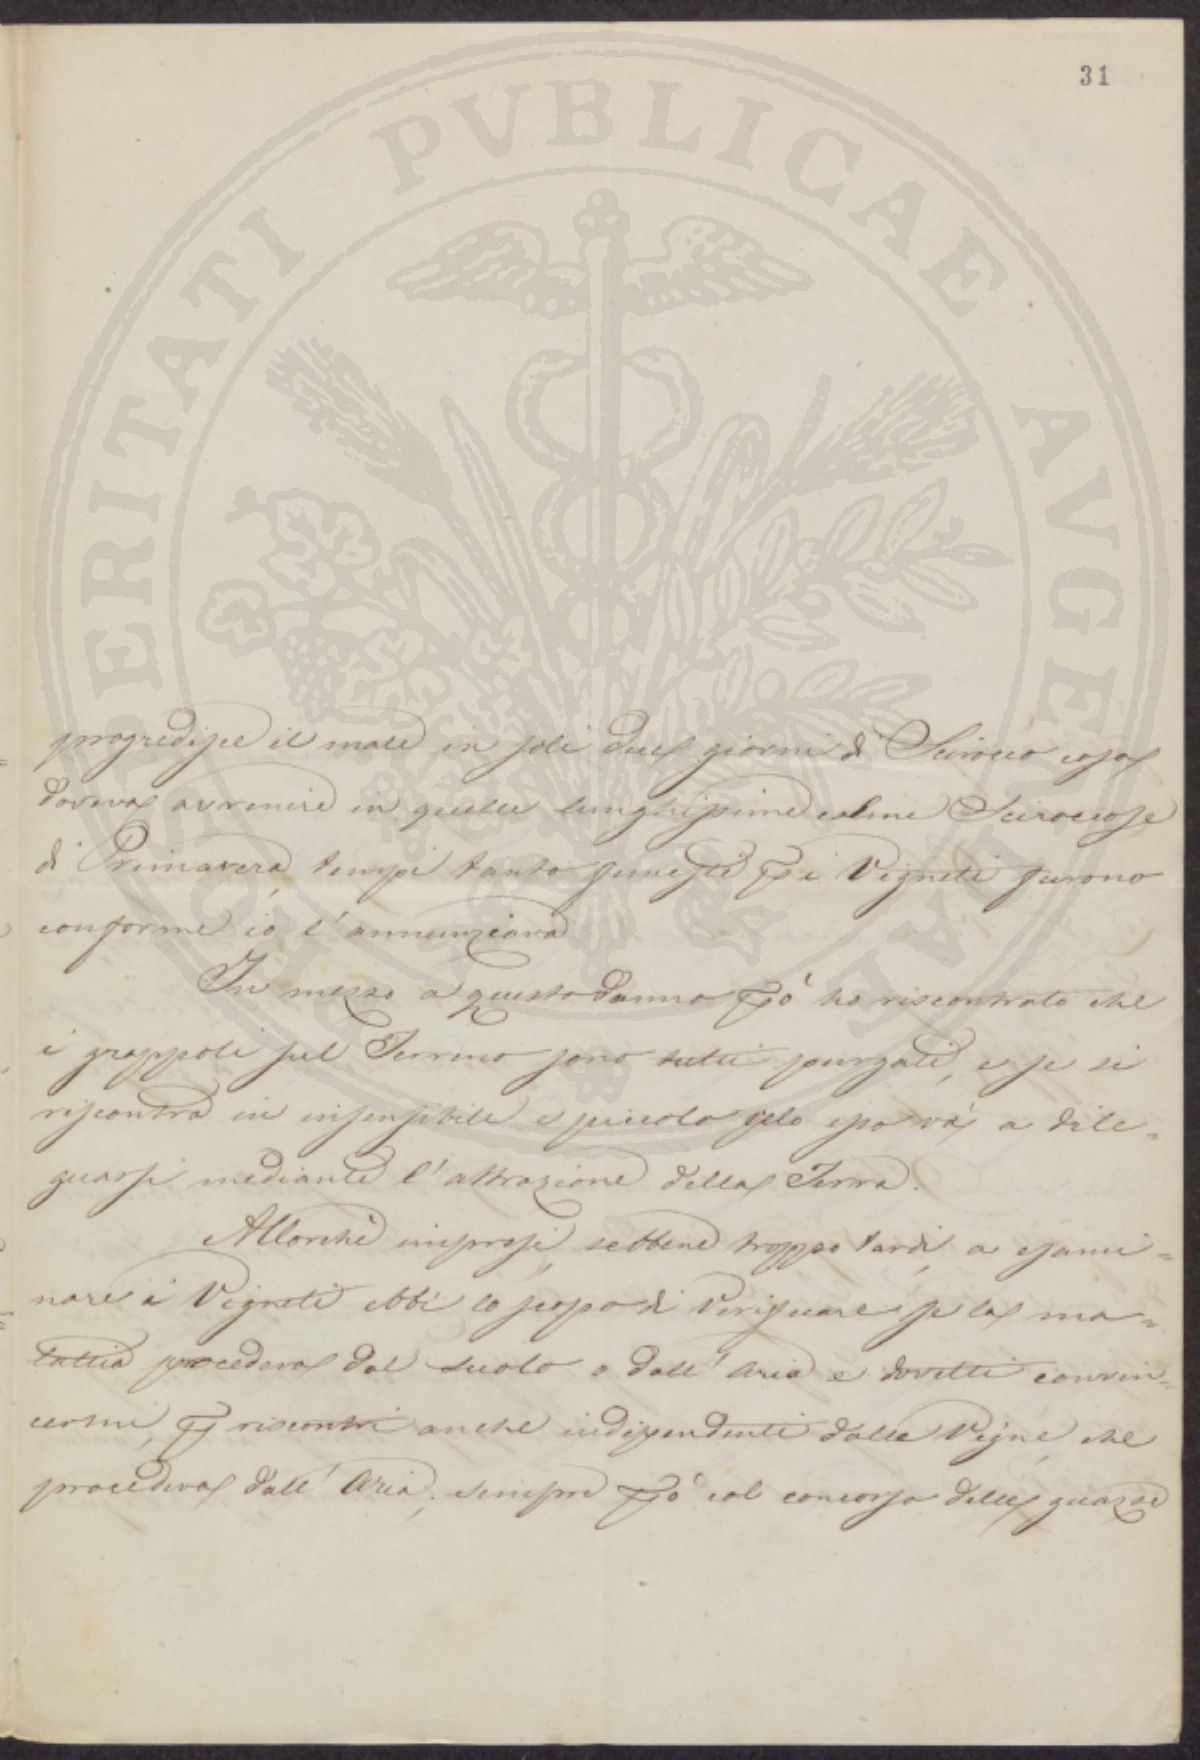 31
PROSPERITATI PVBLICAE AVGENDAE
progredisce il male in soli due giorni di Scirocco cosa
doveva avvenire in quelle lunghissime calme Scirocciose
di Primavera, tempi tanto funesti p i Vigneti furono
conforme io l'annunziava
In mezzo a questo danno pò ho riscontrato che
i grappoli sul Terreno sono tutti purgati, e se si
riscontra in insensibile e piccolo gelo esso và a dile=
guarsi mediante l'attrazione della Terra.
Allorchè impresi, sebbene troppo tardi, a esami=
nare i Vigneti ebbi lo scopo di Verificare se la ma=
lattia procedeva dal suolo o dall'Aria e dovetti convin=
cermi, p riscontri anche indipendenti dalle Vigne, che
procedeva dall'Aria, sempre pò col concorso delle guazze